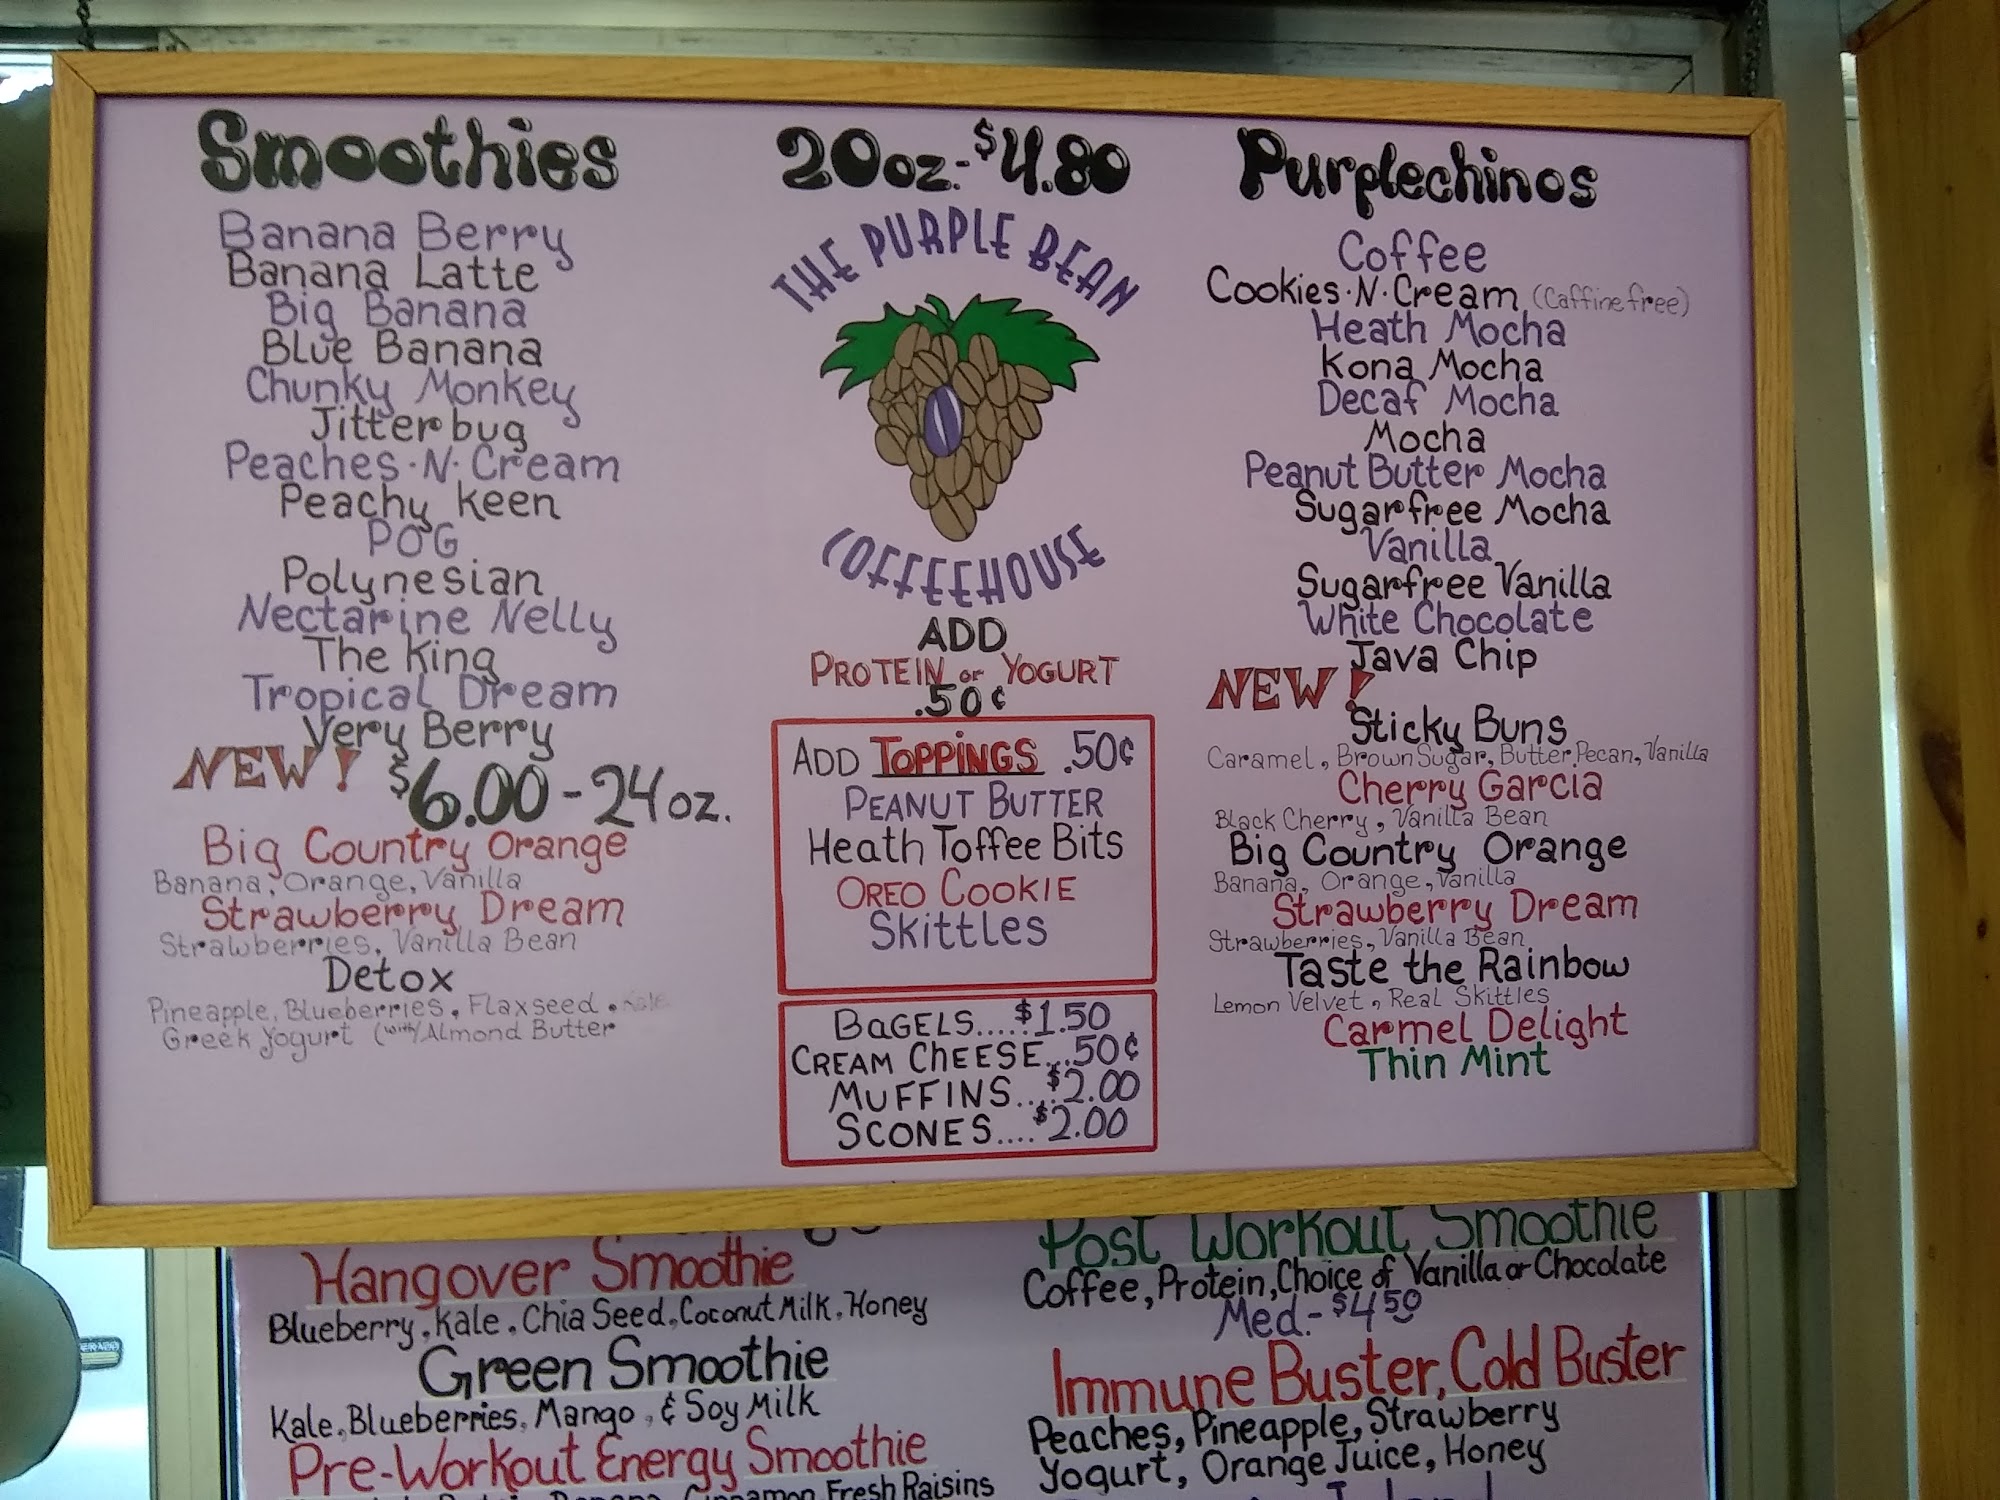 Smoothies
Banana Berry
Banana Latte
Big Banana
Blue Banana
Chunky Monkey
Jitterbug
Peaches·N·Cream
Peachy Keen
POG
Polynesian
Nectarine Nelly
The King
Tropical Dream
Very Berry
NEW!
$6.00-24oz.
Big Country Orange
Banana, Orange, Vanilla
Strawberry Dream
Strawberries, Vanilla Bean
Detox
Pineapple, Blueberries, Flaxseed, Kale
Greek Yogurt (with/Almond Butter
20oz.-$4.80
THE PURPLE BEAN
COFFEEHOUSE
ADD
PROTEIN or YOGURT
.50¢
ADD TOPPINGS .50¢
PEANUT BUTTER
Heath Toffee Bits
OREO COOKIE
Skittles
BAGELS....$1.50
CREAM CHEESE...50¢
MUFFINS....$2.00
SCONES....$2.00
Purplechinos
Coffee
Cookies·N·Cream (Caffine free)
Heath Mocha
Kona Mocha
Decaf Mocha
Mocha
Peanut Butter Mocha
Sugarfree Mocha
Vanilla
Sugarfree Vanilla
White Chocolate
Java Chip
NEW!
Sticky Buns
Caramel, Brown Sugar, Butter Pecan, Vanilla
Cherry Garcia
Black Cherry, Vanilla Bean
Big Country Orange
Banana, Orange, Vanilla
Strawberry Dream
Strawberries, Vanilla Bean
Taste the Rainbow
Lemon Velvet, Real Skittles
Carmel Delight
Thin Mint
Hangover Smoothie
Blueberry, Kale, Chia Seed, Coconut Milk, Honey
Green Smoothie
Kale, Blueberries, Mango, & Soy Milk
Pre-Workout Energy Smoothie
Banana, Cinnamon, Fresh Raisins
Post Workout Smoothie
Coffee, Protein, Choice of Vanilla or Chocolate
Med.-$4.50
Immune Buster, Cold Buster
Peaches, Pineapple, Strawberry
Yogurt, Orange Juice, Honey